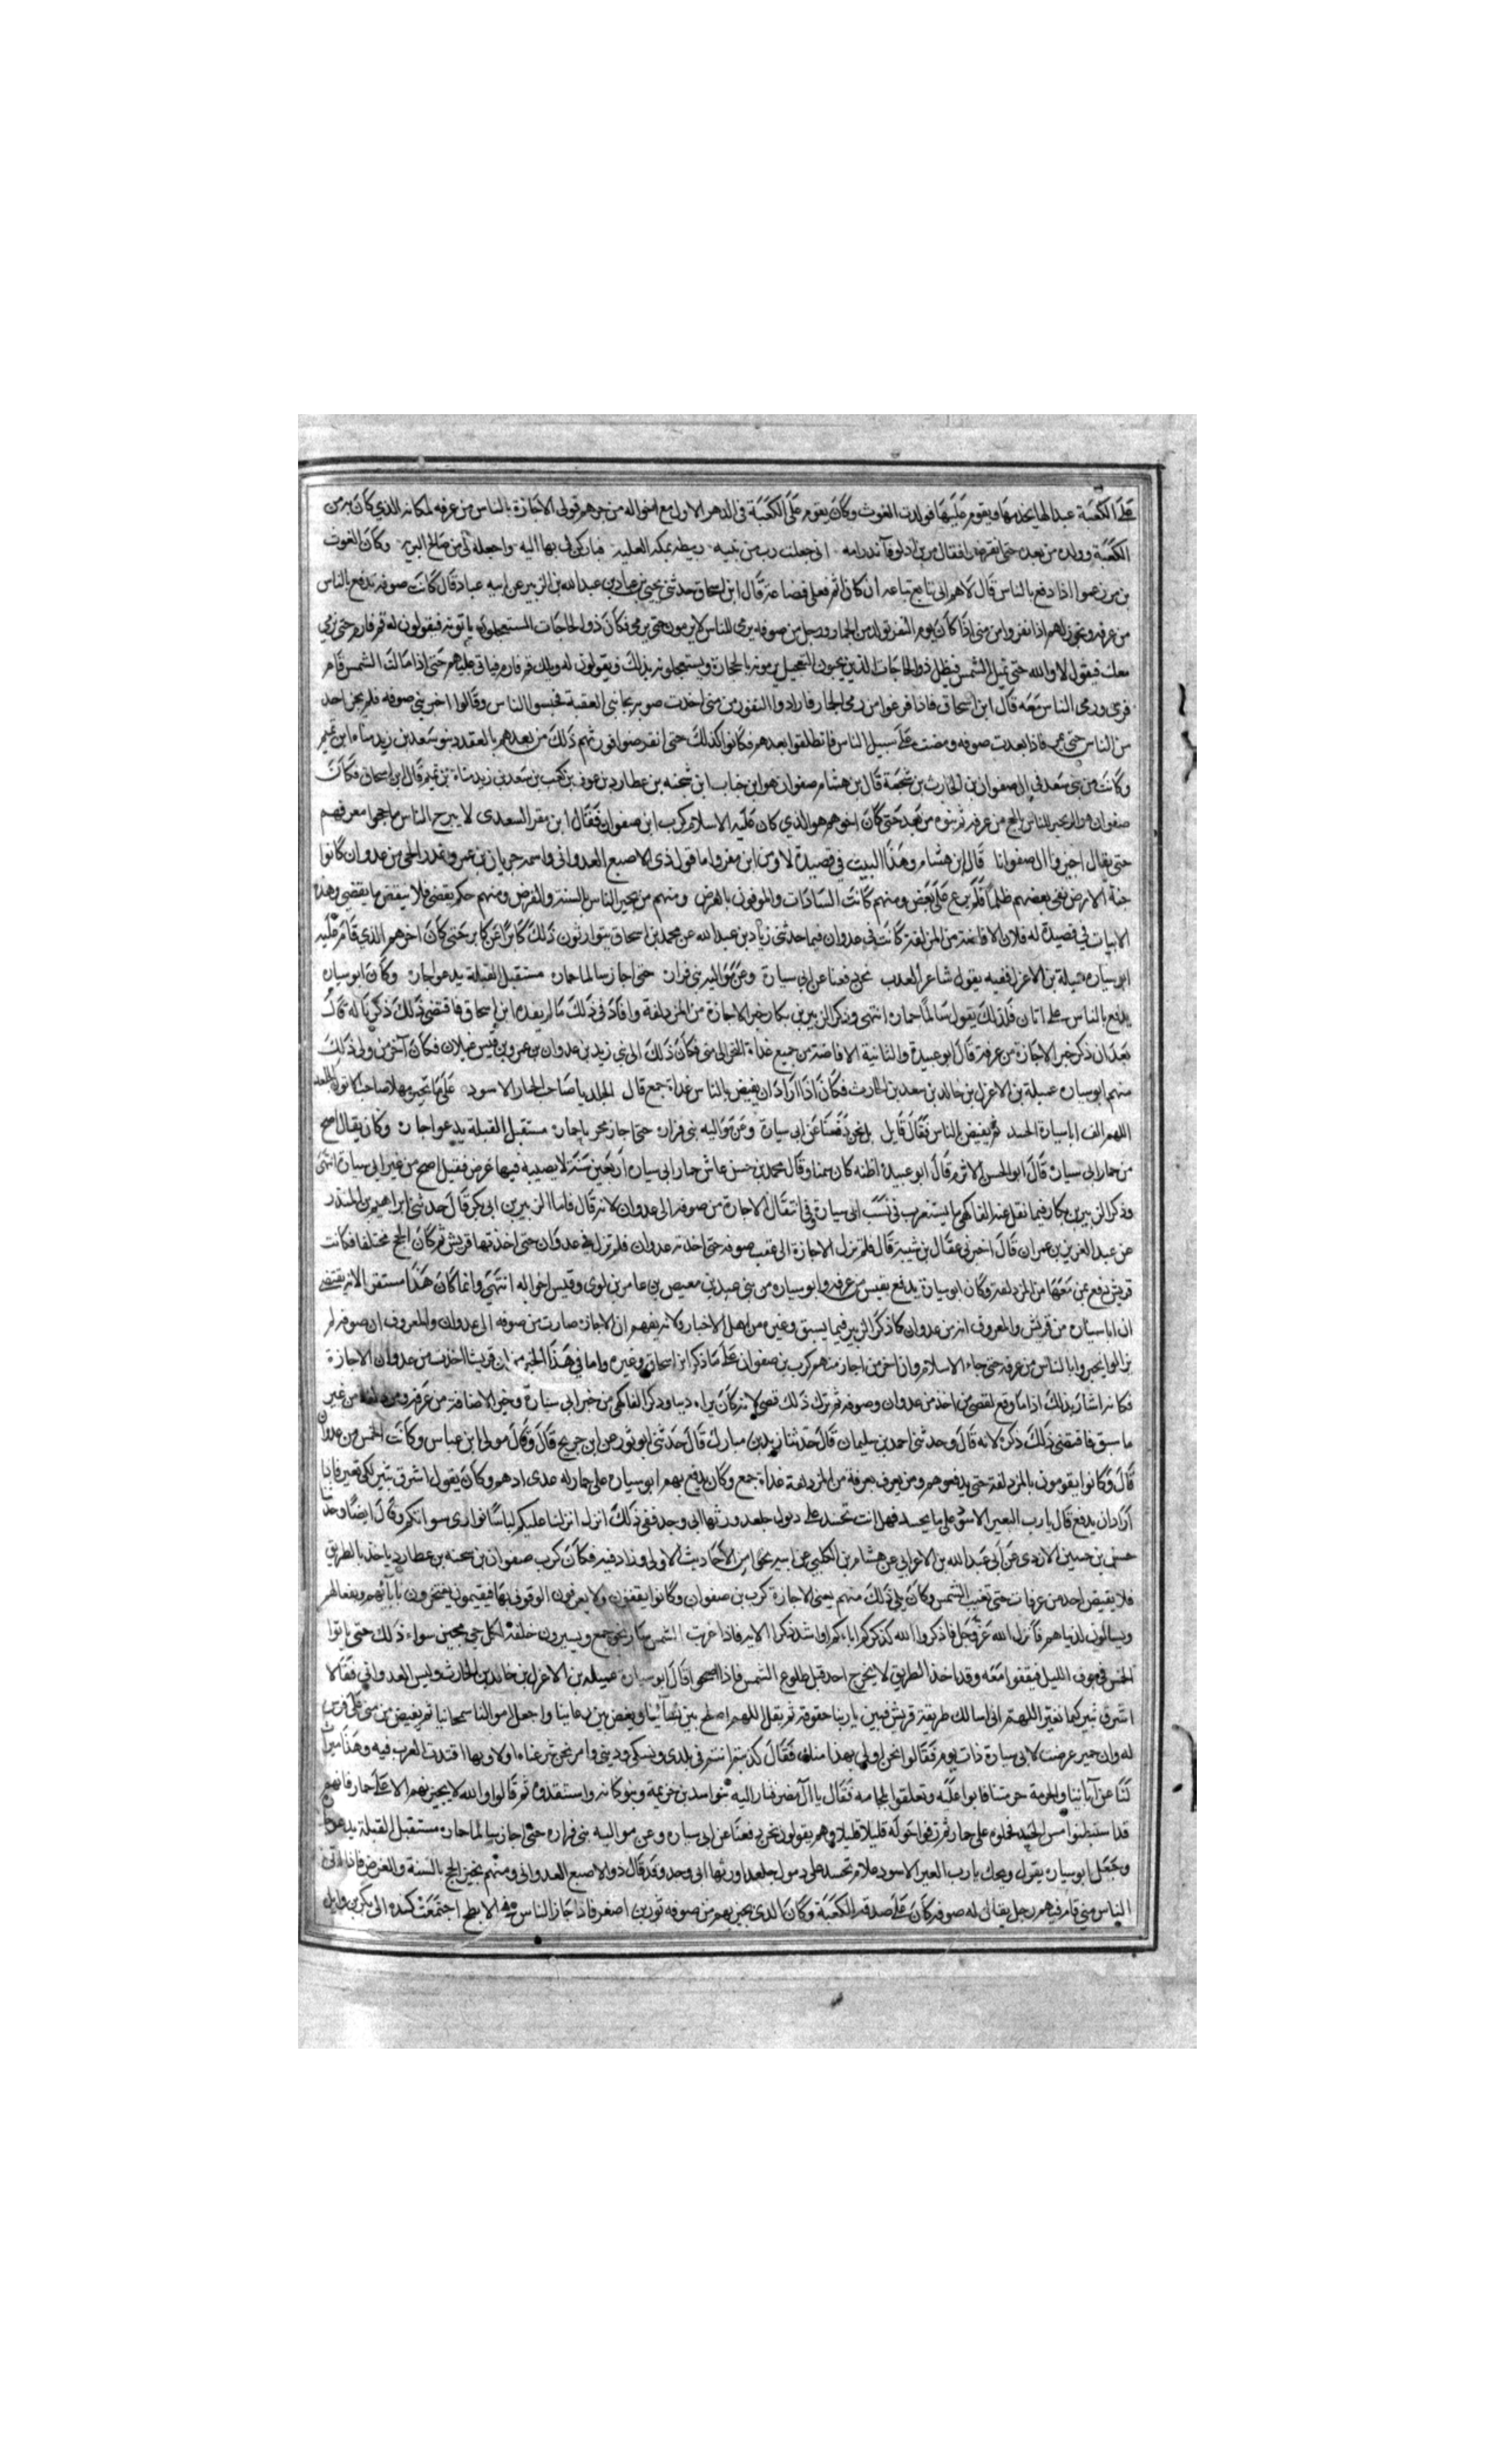 على الكعبة عبدا لها يخدمها ويقوم عليها فولدت الغوث وكان يقوم على الكعبة في الدهر الاول مع اخواله من جرهم فولى الاجازة بالناس من عرفه لمكانه الذي كان به من
الكعبة وولده من بعده حتى انقرضوا فقال مر بن اد لوفآ نذر امه اني جعلت رب من بنيه ربيطة بمكه العليه فباركن لي بها اليه واجعله لي من صالح البريه وكان الغوث
بن مر زعموا اذا دفع بالناس قال لاهم اني تابع تباعه ان كان اثم فعلى قضاعة قال ابن اسحاق حدثني يحيى بن عباد بن عبد الله بن الزبير عن ابيه عباد قال كانت صوفه تدفع بالناس
من عرفه وتجوز بهم اذا نفروا من منى اذا كان يوم النفر اتوا لرمي الجمار ورجل من صوفه يرمي للناس لا يرمون حتى يرمي فكان ذوا الحاجات المستعجلون ياتونه فيقولون له قم فارم حتى نرمي
معك فيقول لا والله حتى تميل الشمس فيظل ذوا الحاجات الذين يحبون التعجيل يرمونه بالحجارة ويستعجلونه بذلك ويقولون له ويلك قم فارم فيابى عليهم حتى اذا مالت الشمس قام
فرمى ورمى الناس معه قال ابن اسحاق فاذا فرغوا من رمى الجمار فارادوا النفور من منى اخذت صوفه بجانبي العقبة فحبسوا الناس وقالوا اجيزي صوفه فلم يجز احد
من الناس حتى يمروا فاذا نفدت صوفه ومضت خلى سبيل الناس فانطلقوا بعدهم فكانوا كذلك حتى انقرضوا فورثهم ذلك من بعدهم بالعقد بنو سعد بن زيد مناه ابن تميم
وكانت من بني سعد في ال صفوان بن الحارث بن شجنة قال بن هشام صفوان هو ابن جناب ابن شجنه بن عطارد بن عوف بن كعب بن سعد بن زيد مناة بن تميم قال ابن اسحاق فكان
صفوان هو الذي يجيز للناس بالحج من عرفه ثم بنوه من بعده حتى كان اخرهم هو الذي كان عليه الاسلام كرب ابن صفوان فقال ابن مغرا السعدي لا يبرح الناس ما حجوا معرفهم
حتى يقال اجيزوا ال صفوانا قال ابن هشام وهذا البيت في قصيدة لاوس ابن مغرا واما قول ذى الاصبع العدواني واسمه حرثان بن عمرو عذير الحى من عدوان كانوا
حية الارض بغى بعضهم ظلما فلم يرع على بعض ومنهم كانت السادات والموفون بالقرض ومنهم من يجيز الناس بالسنة والفرض ومنهم حكم يقضى فلا ينقض ما يقضى وهذه
الابيات في قصيدة له فلان الافاضة من المزلفة كانت في عدوان فيما حدثني زياد بن عبد الله عن محمد بن اسحاق يتوارثون ذلك كابرا عن كابر حتى كان اخرهم الذي قام عليه
ابو سياره عميلة بن الاعزل ففيه يقول شاعر العرب نحن دفعنا عن ابي سيارة وعن مواليه بني فزاره حتى اجاز سالما حماره مستقبل القبلة يدعو جاره وكان ابو سياره
يدفع بالناس على اتان فلذلك يقول سالما حماره انتهى وذكر الزبير بن بكار خبر الاجازة من المزدلفة وافاد في ذلك مالم يفده ابن اسحاق فاقتضى ذلك ذكرنا له قال
بعد ان ذكر خبر الاجازة من عرفة قال ابو عبيدة والثانية الافاضة من جمع غداة النحر الى منى فكان ذلك الى بني زيد بن عدوان بن عمرو بن قيس عيلان فكان آخر من ولى ذلك
منهم ابو سياره عميلة بن الاعزل بن خالد بن سعد بن الحارث فكان اذا اراد ان يفيض بالناس غداة جمع قال
اللهم اكف ابا سيارة الحسد ثم يفيض بالناس فقال قايل نحن دفعنا عن ابي سيارة وعن مواليه بني فزاره حتى اجاز محرما حماره مستقبل القبلة يدعو جاره وكان يقال اصح
من حمار ابي سياره قال ابو الحسن الاثرم قال ابو عبيدة اظنه كان سمينا وقال محمد بن حسن عاش حمار ابي سياره اربعين سنة لا يصيبه فيها مرض فقيل اصح من عير ابي سيارة انتهى
وذكر الزبير بن بكار فيما نقل عنه الفاكهي ما يستغرب في نسب ابى سيارة وفي انتقال الاجازة من صوفه الى عدوان لانه قال فاما الزبير بن ابي بكر قال حدثني ابراهيم بن المنذر
عن عبد العزيز بن عمران قال اخبرني عقال بن شيبة قال فلم تزل الاجازة الى عقب صوفه حتى اخذته عدوان فلم تزل في عدوان حتى اخذتها قريش ثم كان الحج مختلفا فكانت
قريش تدفع بمن معها من المزدلفة وكان ابو سيارة يدفع بقيس من عرفه وابو سياره من بني عبد بن معيص بن عامر بن لوى وقيس اخواله انتهى وانما كان هذا مستغربا لانه يقتضى
ان ابا سياره من قريش والمعروف انه من عدوان كما ذكر الزبير فيما سبق وغيره من اهل الاخبار ولانه يفهم ان الاجازة صارت من صوفه الى عدوان والمعروف ان صوفه لم
يزالوا يجيزوا بالناس من عرفه حتى جاء الاسلام وان اخر من اجاز منهم كرب بن صفوان على ما ذكر ابن اسحاق وغيره واما في هذا الخبر من ان قريشا اخذت من عدوان الاجازة
فكانه اشار بذلك اذا ما وقع لقصى من اخذ من عدوان وصوفه ثم ترك ذلك قصى لانه كان يراه دينا وذكر الفاكهي من خبر ابى سيارة وخبر الافاضة من عرفه ومن مزدلفة من غير
ما سبق فاقتضى ذلك ذكره لانه قال وحدثني احمد بن سليمان قال حدثنا زيد بن مبارك قال حدثنى ابو ثور عن ابن جريج قال وقال مولى ابن عباس وكانت الحمس من عدوان
قال وكانوا يقومون بالمزدلفة حتى يدفعوا هم ومن يعرف بعرفة من المزدلفة غداة جمع وكان يدفع بهم ابو سياره على حمار له عدى ادهم وكان يقول اشرق ثبير لكي نغير فاذا
اراد ان يدفع قال يارب البعير
حسن بن حسين الازدى عن ابي عبد الله بن الاعرابي عن هشام بن الكلبي عن ابيه نحوا من الأحاديث الاولى وزاد فيه فكان كرب صفوان بن شجنه بن عطارد ياخذ بالطريق
فلا يفيض احد من عرفات حتى تغيب الشمس وكان يلى ذلك منهم يعنى الاجازة كرب بن صفوان وكانوا يقفون ولا يعرفون الوقوف بها فيقيمون يفتخرون بابآئهم وبفعالهم
ويسالون لدنياهم فانزل الله عز وجل فاذكروا الله كذكركم اباءكم او اشد ذكرا الايه فاذا غربت الشمس سار نحو جمع ويسيرون خلفه لكل حى مجيز سواء ذلك حتى ياتوا
الحمس في جوف الليل فيقفوا معه وقد اخذ الطريق لا يخرج احد قبل طلوع الشمس فاذا اصبحوا قال ابو سياره عميله بن الاعزل بن خالد بن الحارث وليس العدواني فقال لا
اشرق ثبير كيما نغير اللهم اني اسالك طريقة قريش فبين يا ربنا حقوقه ثم يقل اللهم اصلح بين نسآئنا وبغض بين رعاينا واجعل اموالنا سمحائنا ثم يفيض من منى على فرس
له وان حمير عرضت لابي سيارة ذات يوم فقالوا نحن اولى بهذا منك فقال كذبتم انتم في بلدى ونسكى وديني اقتدت العرب فيه وهذا ميراث
لنا عن آبائنا والحرمة حرمتنا فابوا عليه وتعلقوا بلجامه فقال يا ال مضر فثار اليه بنو اسد بن خزيمة وبنو كنانه واستنقذوه ثم قالوا والله لا يجيز بهم الا على حمار فانهم
قد استبطنوا مس الخيل فحملوه على حمار ثم زفوا حوله قليلا قليلا وهم يقولون نحن دفعنا عن ابي سياره وعن مواليه بني فزاره حتى اجاز سالما حماره مستقبل القبلة يدعو جاره
وجعل ابو سياره يقول وقد قال ذو الاصبع العدواني ومنهم من يجيز الحج بالسنة والفرض فاذا اتى
الناس منى قام فيهم رجل يقال له صوفه كان على صدقة الكعبة وكان الذي يجيز بهم من صوفه ثور بن اصفر فاذا جاز الناس في الابطح اجتمعت كنده الى بكر بن وايل